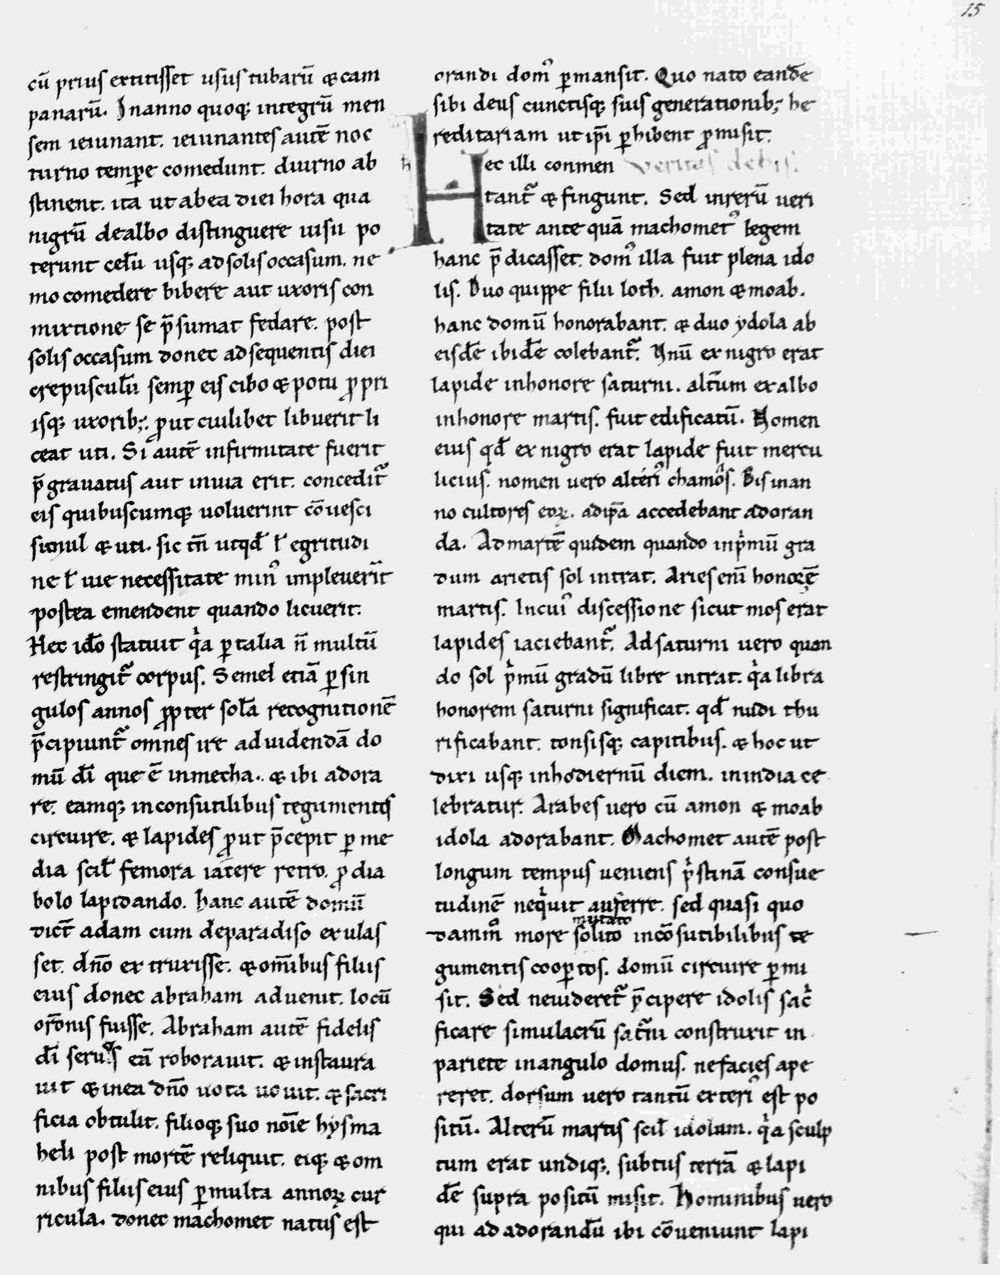 15
cū prius extitisset usus tubarū & cam
panarū. In anno quoq; integrū men
sem ieiunant. ieiunantes autē noc
turno tempe comedunt. diurno ab
stinent. ita ut abea diei hora qua
nigrū dealbo distinguere uisu po
terunt celū usq; ad solis occasum. ne
mo comedere bibere aut uxoris con
mixtione se p̄sumat fedare. post
solis occasum donec ad sequentis diei
crepusculū semp eis cibo & potu ꝓpri
isq; uxorib;. ꝓut cuilibet libuerit li
ceat uti. Si autē infirmitate fuerit
p̄grauatus aut inuia erit. concedit᷑
eis quibuscumq; uoluerint cōuesci
simul & uti. sic tn̄ utqd̄ ł egritudi
ne ł uie necessitate min᷒ impleuerit
postea emendent quando licuerit.
Hec idō statuit q̇a ꝑtalia n̄ multū
restringit᷑ corpus. Semel etiā ꝑ sin
gulos annos ꝓpter solā recognitionē
p̄cipiunt᷑ omnes ire ad uidendā do
mū dī que ē inmecha.. & ibi adora
re. eamq; inconsutilibus tegumentis
circuire. & lapides ꝓut p̄cepit ꝑ me
dia scił femora iacere retro. ꝓ dia
bolo lapidando. hanc autē domū
dict̄ adam cum deparadiso exulas
set. dn̄o extruxisse. & om̄ibus filiis
eius donec abraham aduenit. locū
or̄onis fuisse. Abraham autē fidelis
dī seru᷒ eā roborauit. & instaura
uit & inea dn̄o uota uouit. & sacri
ficia obtulit. filioq; suo noīe hysma
heli post mortē reliquit. eiq; & om
nibus filiis eius ꝑmulta annoꝝ cur
ricula. donec machomet natus est
orandi dom᷒ ꝑmansit. Quo nato eandē
sibi deus cunctisq; suis generationib; he
reditariam ut ip̄i ꝑhibent ꝓmisit.
h Hec illi conmen ueritas debis.
tant᷑ & fingunt. Sed inrerū ueri
tate ante quā machomet᷒ legem
hanc p̄dicasset. dom᷒ illa fuit plena ido
lis. Duo quippe filii loth. amon & moab.
hanc domū honorabant. & duo ydola ab
eisdē ibidē colebant᷑. Unū ex nigro erat
lapide inhonore saturni. altum exalbo
inhonore martis. fuit edificatū. Nomen
eius qd̄ ex nigro erat lapide fuit mercu
licius. nomen uero alteri᷒ chamos. Bis inan
no cultores eoꝝ. adip̄a accedebant adoran
da. Ad martē quidem quando inp̄mū gra
dum arietis sol intrat. Aries enī honorē
martis. In cui᷒ discessione sicut mos erat
lapides iaciebant᷑. Ad saturni uero quan
do sol p̄mū gradū libre intrat. q̇a libra
honorem saturni significat. qd̄ nudi thu
rificabant. tonsisq; capitibus. & hoc ut
dixi usq; inhodiernū diem. in india ce
lebratur. Arabes uero cū amon & moab
idola adorabant. Machomet autē post
longum tempus ueniens p̄stinā consue
tudinē neq̇uit auferre. sed quasi quo
mutato
dammō more solito incōsutibilibus te
gumentis cooptos. domū circuire ꝑmi
sit. Sed neuideret᷑ p̄cipere idolis sac̄
ficare simulacrū sat̄ni construxit in
pariete in angulo domus. ne facies ape
reret. dorsum uero tantū exteri᷒ est po
situ. Alterū martis scił idolum. q̇a sculp
tum erat undiq;. subtus terrā & lapi
dē supra positū misit. Hominibus uero
qui ad adorandū ibi cōueniunt lapi